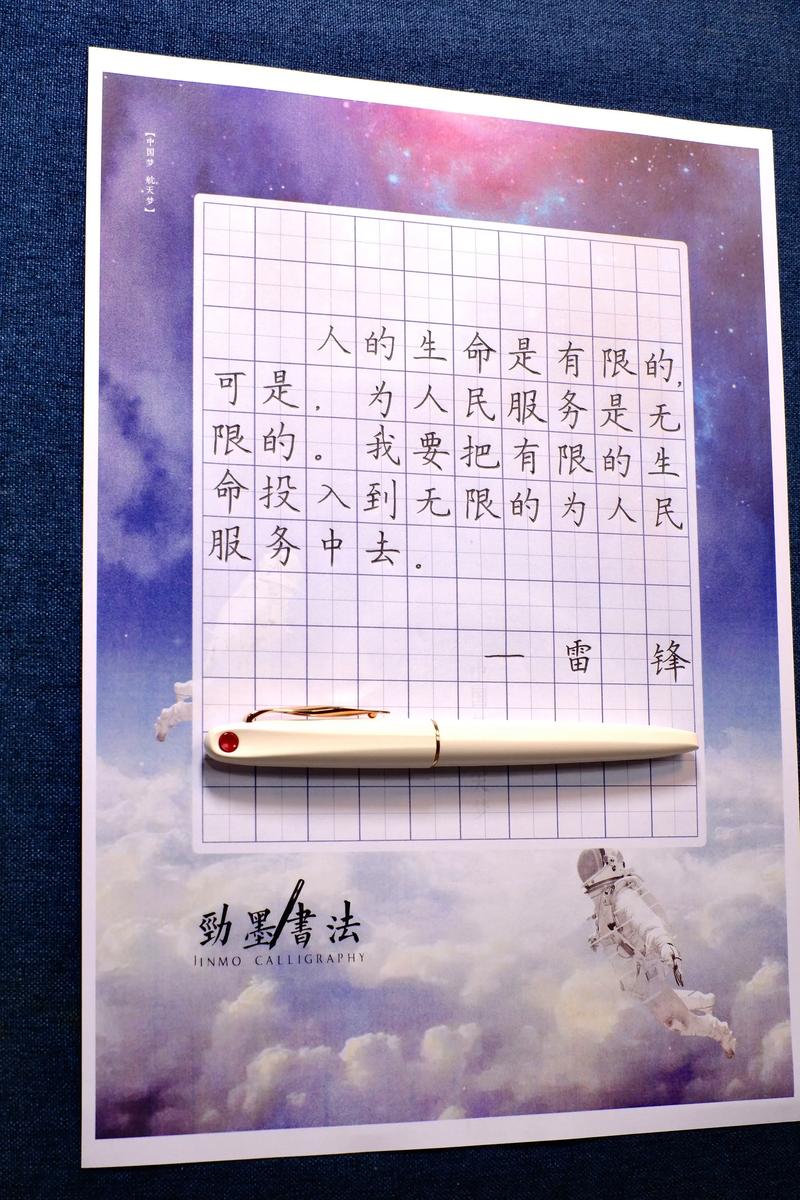 【中国梦 航天梦】
人的生命是有限的，
可是，为人民服务是无
限的。我要把有限的生
命投入到无限的为人民
服务中去。
— 雷 锋
勁墨書法
JINMO CALLIGRAPHY